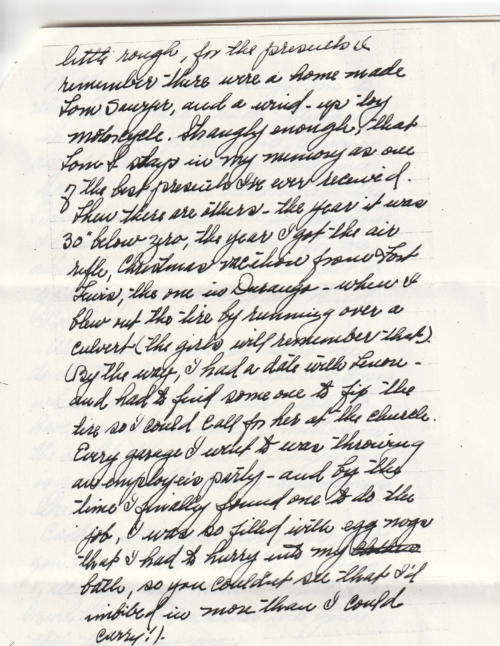 little rough, for the presents I
remember there were a home made
Tom Sawyer, and a wind-up toy
motorcycle. Strangly enough, that
Tom S stays in my memory as one
of the best presents I've ever received.
Then there are others - the year it was
30° below zero, the year I got the air
rifle, Christmas vacation from Fort
Lewis, the one in Durango - when I
blew out the tire by running over a
culvert (the girls will remember that).
(By the way, I had a date with Lenore -
and had to find some one to fix the
tire so I could call for her at the church.
Every garage I went to was throwing
an employee's party - and by the
time I finally found one to do the
job I was so filled with egg nogs
that I had to hurry into my
bath, so you couldn't see that I'd
imbibed in more than I could
carry!).